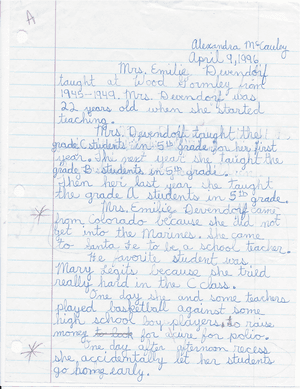 A
Alexandra McCauley
April 9, 1996
Mrs. Emilie Devendorf
taught at Wood Gormley from
1945-1949. Mrs. Devendorf was
22 years old when she started
teaching.
Mrs. Devendorf taught the
grade C students in 5th grade for her first
year. The next year she taught the
grade B students in 5th grade.
Then her last year she taught
the grade A students in 5th grade.
Mrs. Emilie Devendorf came
from Colorado because she did not
get into the Marines. She came
to Santa Fe to be a school teacher.
He favorite student was
Mary because she tried
really hard in the C class.
One day she and some teachers
played basketball against some
high school boy players to raise
money to cook for for polio.
One day after afternoon recess
she accidentally let her students
go home early.